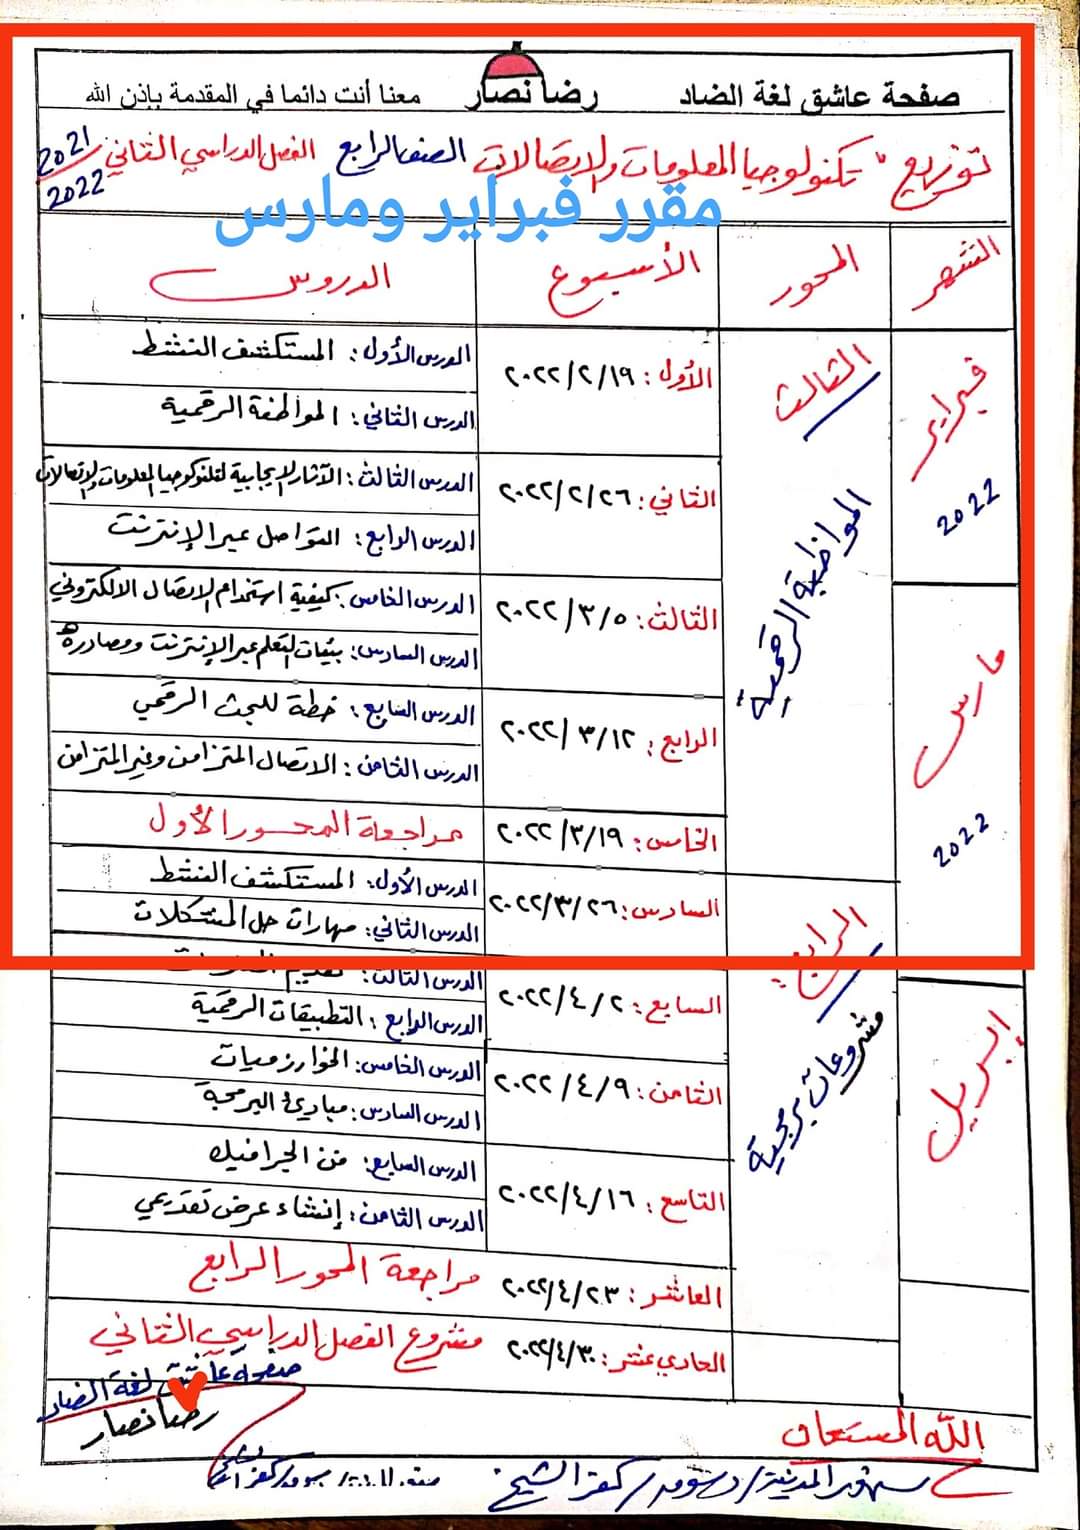 صفحة عاشق لغة الضاد رضا نصار معنا أنت دائما في المقدمة بإذن الله
توزيع " تكنولوجيا المعلومات والاتصالات الصف الرابع الفصل الدراسي الثاني 2021/2022
مقرر فبراير ومارس
الشهر المحور الأسبوع الدروس
فبراير 2022
مارس 2022
إبريل
الثالث
المواطنة الرقمية
الرابع:
مشروعات برمجية
الأول: ٢٠٢٢/٢/١٩
الدرس الأول: المستكشف النشط
الدرس الثاني: المواطنة الرقمية
الثاني: ٢٠٢٢/٢/٢٦
الدرس الثالث: الآثار الإيجابية لتكنولوجيا المعلومات والاتصالات
الدرس الرابع: التواصل عبر الإنترنت
الثالث: ٢٠٢٢/٣/٥
الدرس الخامس: كيفية استخدام الاتصال الالكتروني
الدرس السادس: بيئات التعلم عبر الإنترنت ومصادره
الرابع: ٢٠٢٢/٣/١٢
الدرس السابع: خطة للبحث الرقمي
الدرس الثامن: الاتصال المتزامن وغير المتزامن
الخامس: ٢٠٢٢/٣/١٩
مراجعة المحور الأول
السادس: ٢٠٢٢/٣/٢٦
الدرس الأول: المستكشف النشط
الدرس الثاني: مهارات حل المشكلات
السابع: ٢٠٢٢/٤/٢
الدرس الثالث: تقديم
الدرس الرابع: التطبيقات الرقمية
الثامن: ٢٠٢٢/٤/٩
الدرس الخامس: الخوارزميات
الدرس السادس: مبادئ البرمجة
التاسع: ٢٠٢٢/٤/١٦
الدرس السابع: فن الجرافيك
الدرس الثامن: إنشاء عرض تقديمي
العاشر: ٢٠٢٢/٤/٢٣ مراجعة المحور الرابع
الحادي عشر: ٢٠٢٢/٤/٣٠ مشروع الفصل الدراسي الثاني
صفحة عاشق لغة الضاد
رضا نصار
الله المستعان
سنهور المدينة/دسوق/كفر الشيخ